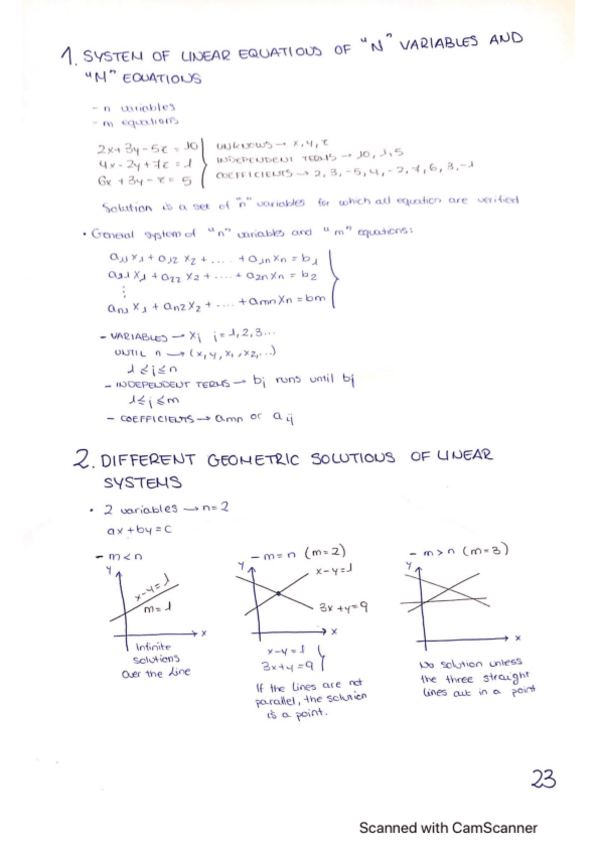 1. SYSTEM OF LINEAR EQUATIOUS OF "N" VARIABLES AND
"M" EQUATIOUS
- n variables
- m equations
2x+3y-5z=10
4x-2y+7z=1
6x+3y-z=5
UNKNOWS → x,y,z
INDEPENDENT TERMS → 10,1,5
COEFFICIENTS → 2,3,-5,4,-2,7,6,3,-1
Solution is a set of "n" variables for which all equation are verified
• General system of "n" variables and "m" equations:
a11 x1 + a12 x2 + .... + a1n xn = b1
a21 x1 + a22 x2 + .... + a2n xn = b2
⋮
an1 x1 + an2 x2 + .... + amn xn = bm
- VARIABLES → xj j=1,2,3...
UNTIL n → (x,y,x1,x2,...)
1≤j≤n
- INDEPENDENT TERMS → bj runs until bj
1≤j≤m
- COEFFICIENTS → amn or aij
2. DIFFERENT GEOMETRIC SOLUTIOUS OF LINEAR
SYSTEMS
• 2 variables → n=2
ax+by=c
- m<n
y
x-y=1
m=1
x
Infinite
solutions
over the line
- m=n (m=2)
y
x-y=1
3x+y=9
x
x-y=1
3x+y=9
If the lines are not
parallel, the solution
is a point.
- m>n (m=3)
y
x
No solution unless
the three straight
lines cut in a point
23
Scanned with CamScanner